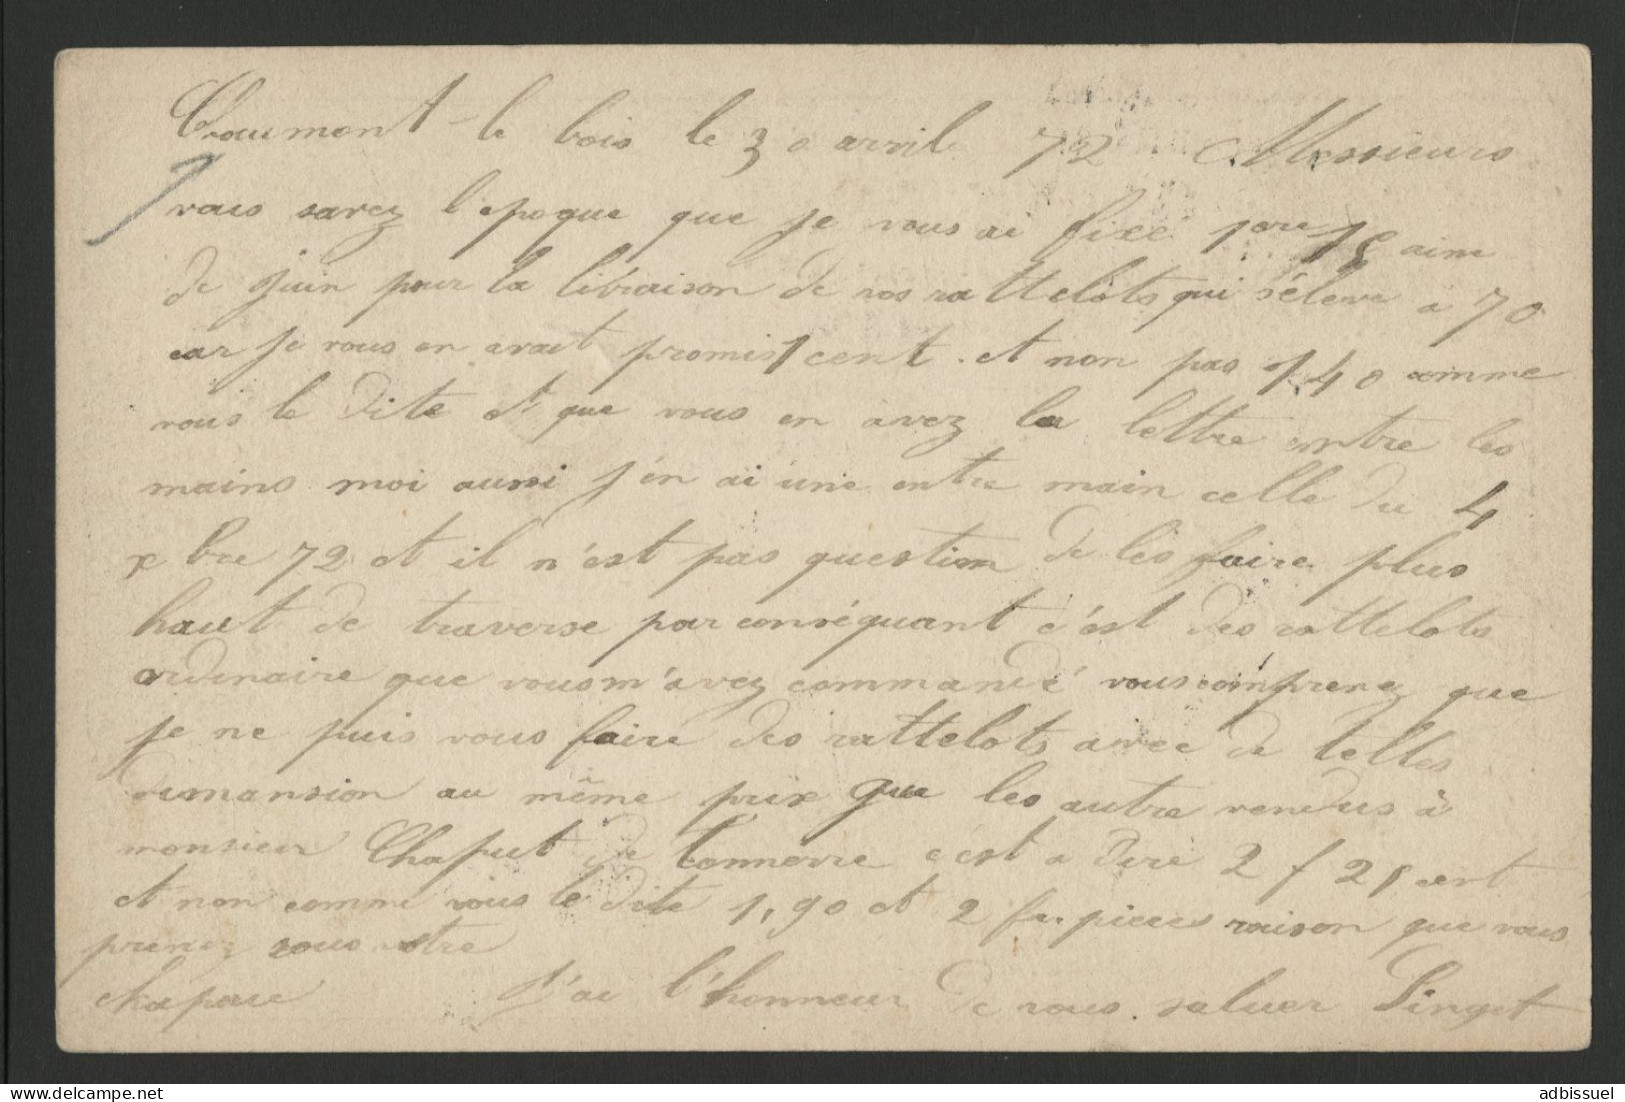 Chaumont le bois le 30 avril 72 Messieurs
vous savez l'epoque que je vous ai fixé 1ere 15aine
de juin pour la livraison de vos rattelots qui s'éleve a 70
car je vous en avait promis 1 cent. et non pas 140 comme
vous le dite et que vous en avez la lettre entre les
mains moi aussi j'en ai une entre main celle du 4
xbre 72 et il n'est pas question de les faire plus
haut de traverse par conséquant c'est des rattelots
ordinaire que vous m'avez commandé vous comprenez que
je ne puis vous faire des rattelots avec de telles
dimansion au même prix que les autre vendus à
monsieur Chaput de Tonnerre c'est a dire 2 f 25 cent
et non comme vous le dite 1,90 et 2 fr. pieces raison que vous
prenez sous votre
chapau J'ai l'honneur de vous saluer Pinget
adbissuel